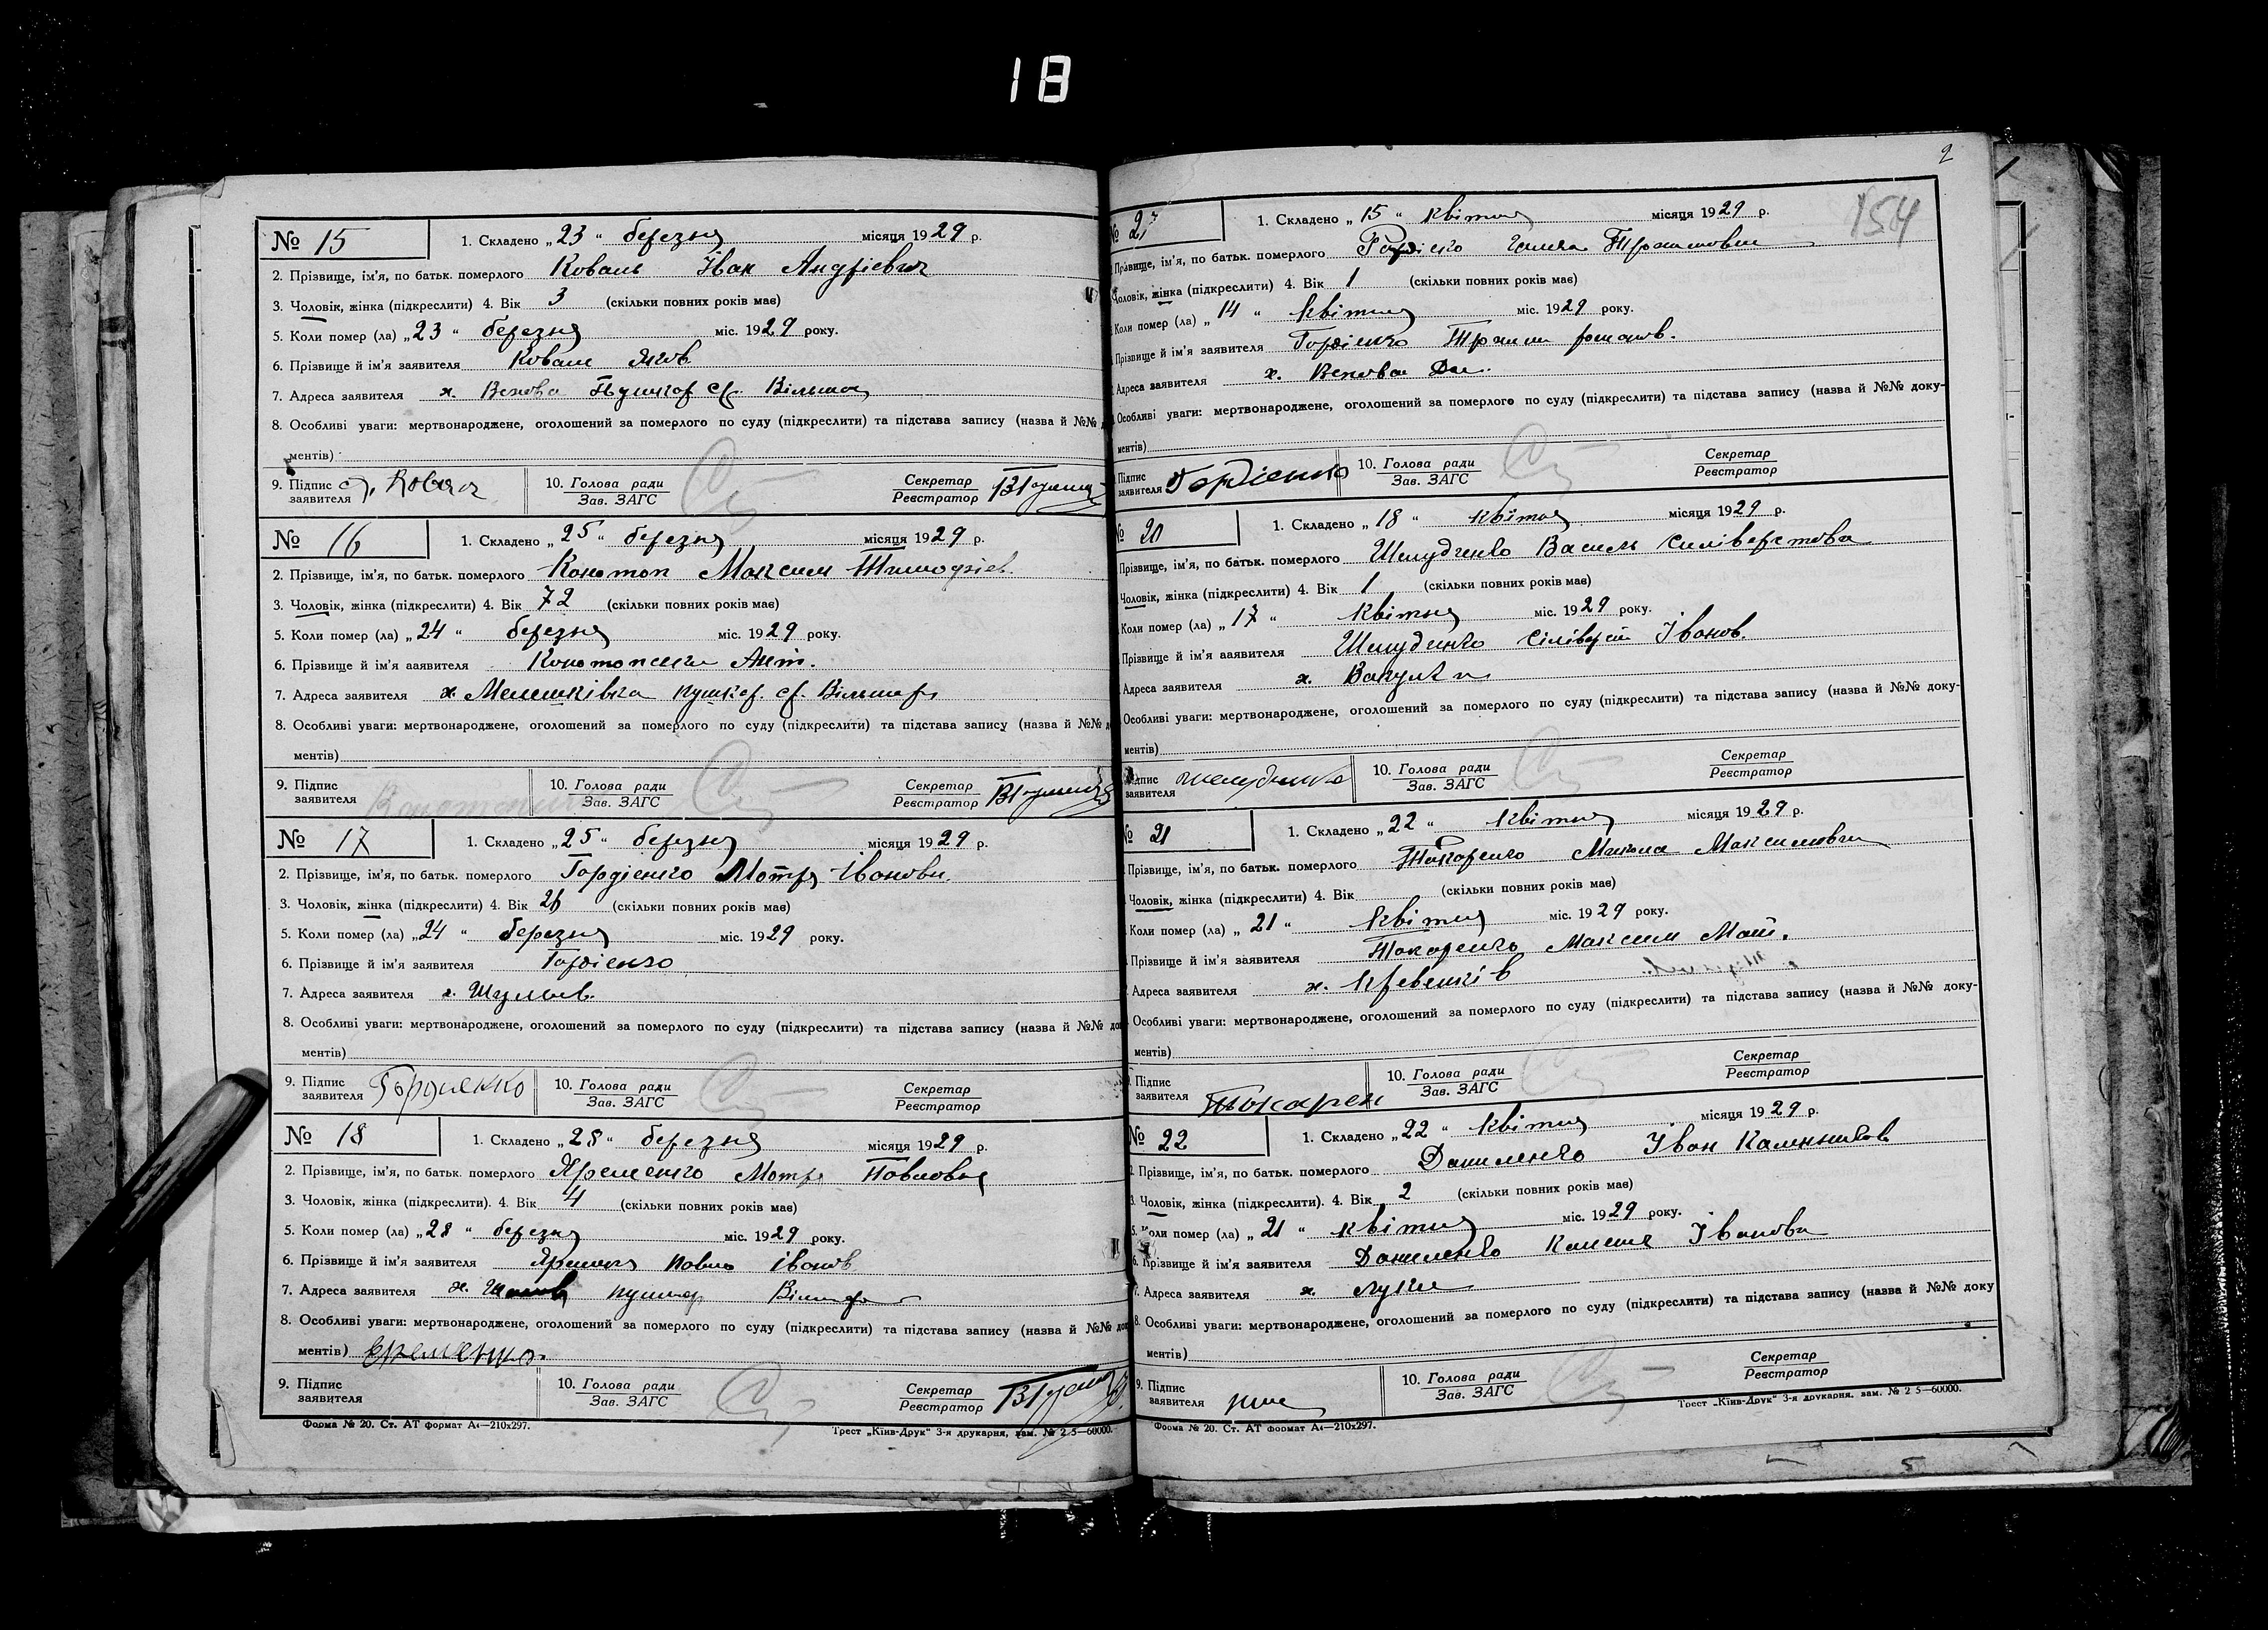 18
№ 15 1. Складено „23“ березня місяця 1929 р.
2. Прізвище, ім'я, по батьк. померлого Коваль Іван Андрієвич
3. Чоловік, жінка (підкреслити) 4. Вік 3 (скільки повних років має)
5. Коли помер (ла) „23“ березня міс. 1929 року.
6. Прізвище й ім'я заявителя Коваль Яков
7. Адреса заявителя х.
8. Особливі уваги: мертвонароджене, оголошений за померлого по суду (підкреслити) та підстава запису (назва й №№
ментів)
9. Підпис заявителя 10. Голова ради Зав. ЗАГС Секретар Реєстратор
№ 16 1. Складено „25“ березня місяця 1929 р.
2. Прізвище, ім'я, по батьк. померлого Конотоп Максим Тимофієв
3. Чоловік, жінка (підкреслити) 4. Вік 72 (скільки повних років має)
5. Коли помер (ла) „24“ березня міс. 1929 року.
6. Прізвище й ім'я заявителя
7. Адреса заявителя х. Мелешківка пушкар. ср.
8. Особливі уваги: мертвонароджене, оголошений за померлого по суду (підкреслити) та підстава запису (назва й №№
ментів)
9. Підпис заявителя 10. Голова ради Зав. ЗАГС Секретар Реєстратор
№ 17 1. Складено „25“ березня місяця 1929 р.
2. Прізвище, ім'я, по батьк. померлого Гордієнко Мотря Іванови
3. Чоловік, жінка (підкреслити) 4. Вік 26 (скільки повних років має)
5. Коли помер (ла) „24“ березня міс. 1929 року.
6. Прізвище й ім'я заявителя Гордієнко
7. Адреса заявителя х.
8. Особливі уваги: мертвонароджене, оголошений за померлого по суду (підкреслити) та підстава запису (назва й №№
ментів)
9. Підпис заявителя Гордиенко 10. Голова ради Зав. ЗАГС Секретар Реєстратор
№ 18 1. Складено „28“ березня місяця 1929 р.
2. Прізвище, ім'я, по батьк. померлого Яременко Мотря Павловна
3. Чоловік, жінка (підкреслити). 4. Вік 4 (скільки повних років має)
5. Коли помер (ла) „28“ березня міс. 1929 року.
6. Прізвище й ім'я заявителя Яременко Павло Іванов
7. Адреса заявителя х.
8. Особливі уваги: мертвонароджене, оголошений за померлого по суду (підкреслити) та підстава запису (назва й №№
ментів) Еременко.
9. Підпис заявителя 10. Голова ради Зав. ЗАГС Секретар Реєстратор
Форма № 20. Ст. АТ формат А4—210х297. Трест „Київ-Друк“ 3-я друкарня, зам. № 2 5—60000.
2
154
1. Складено „15“ квітня місяця 1929 р.
Прізвище, ім'я, по батьк. померлого
Чоловік, жінка (підкреслити) 4. Вік 1 (скільки повних років має)
Коли помер (ла) „14“ квітня міс. 1929 року.
Прізвище й ім'я заявителя Гордієнко
Адреса заявителя х.
Особливі уваги: мертвонароджене, оголошений за померлого по суду (підкреслити) та підстава запису (назва й №№ доку-
ментів)
Підпис заявителя Гордіенко 10. Голова ради Зав. ЗАГС Секретар Реєстратор
№ 20 1. Складено „18“ квітня місяця 1929 р.
Прізвище, ім'я, по батьк. померлого Шелудченко Василь Силіверстови
Чоловік, жінка (підкреслити) 4. Вік 1 (скільки повних років має)
Коли помер (ла) „17“ квітня міс. 1929 року.
Прізвище й ім'я заявителя Шелудченко Іванов
Адреса заявителя х.
Особливі уваги: мертвонароджене, оголошений за померлого по суду (підкреслити) та підстава запису (назва й №№ доку-
ментів)
Підпис заявителя 10. Голова ради Зав. ЗАГС Секретар Реєстратор
№ 21 1. Складено „22“ квітня місяця 1929 р.
Прізвище, ім'я, по батьк. померлого Токаренко Микола Максимович
Чоловік, жінка (підкреслити) 4. Вік (скільки повних років має)
Коли помер (ла) „21“ квітня міс. 1929 року.
Прізвище й ім'я заявителя Токаренко Максим Мат.
Адреса заявителя х.
Особливі уваги: мертвонароджене, оголошений за померлого по суду (підкреслити) та підстава запису (назва й №№ доку-
ментів)
Підпис заявителя Токарен 10. Голова ради Зав. ЗАГС Секретар Реєстратор
№ 22 1. Складено „22“ квітня місяця 1929 р.
2. Прізвище, ім'я, по батьк. померлого Даниленко Іван
3. Чоловік, жінка (підкреслити). 4. Вік 2 (скільки повних років має)
5. Коли помер (ла) „21“ квітня міс. 1929 року.
6. Прізвище й ім'я заявителя Даниленко Іванови
7. Адреса заявителя х. Луки
8. Особливі уваги: мертвонароджене, оголошений за померлого по суду (підкреслити) та підстава запису (назва й №№ доку
ментів)
9. Підпис заявителя 10. Голова ради Зав. ЗАГС Секретар Реєстратор
Форма № 20. Ст. АТ формат А4—210х297. Трест „Київ-Друк“ 3-я друкарня, зам. № 2 5—60000.